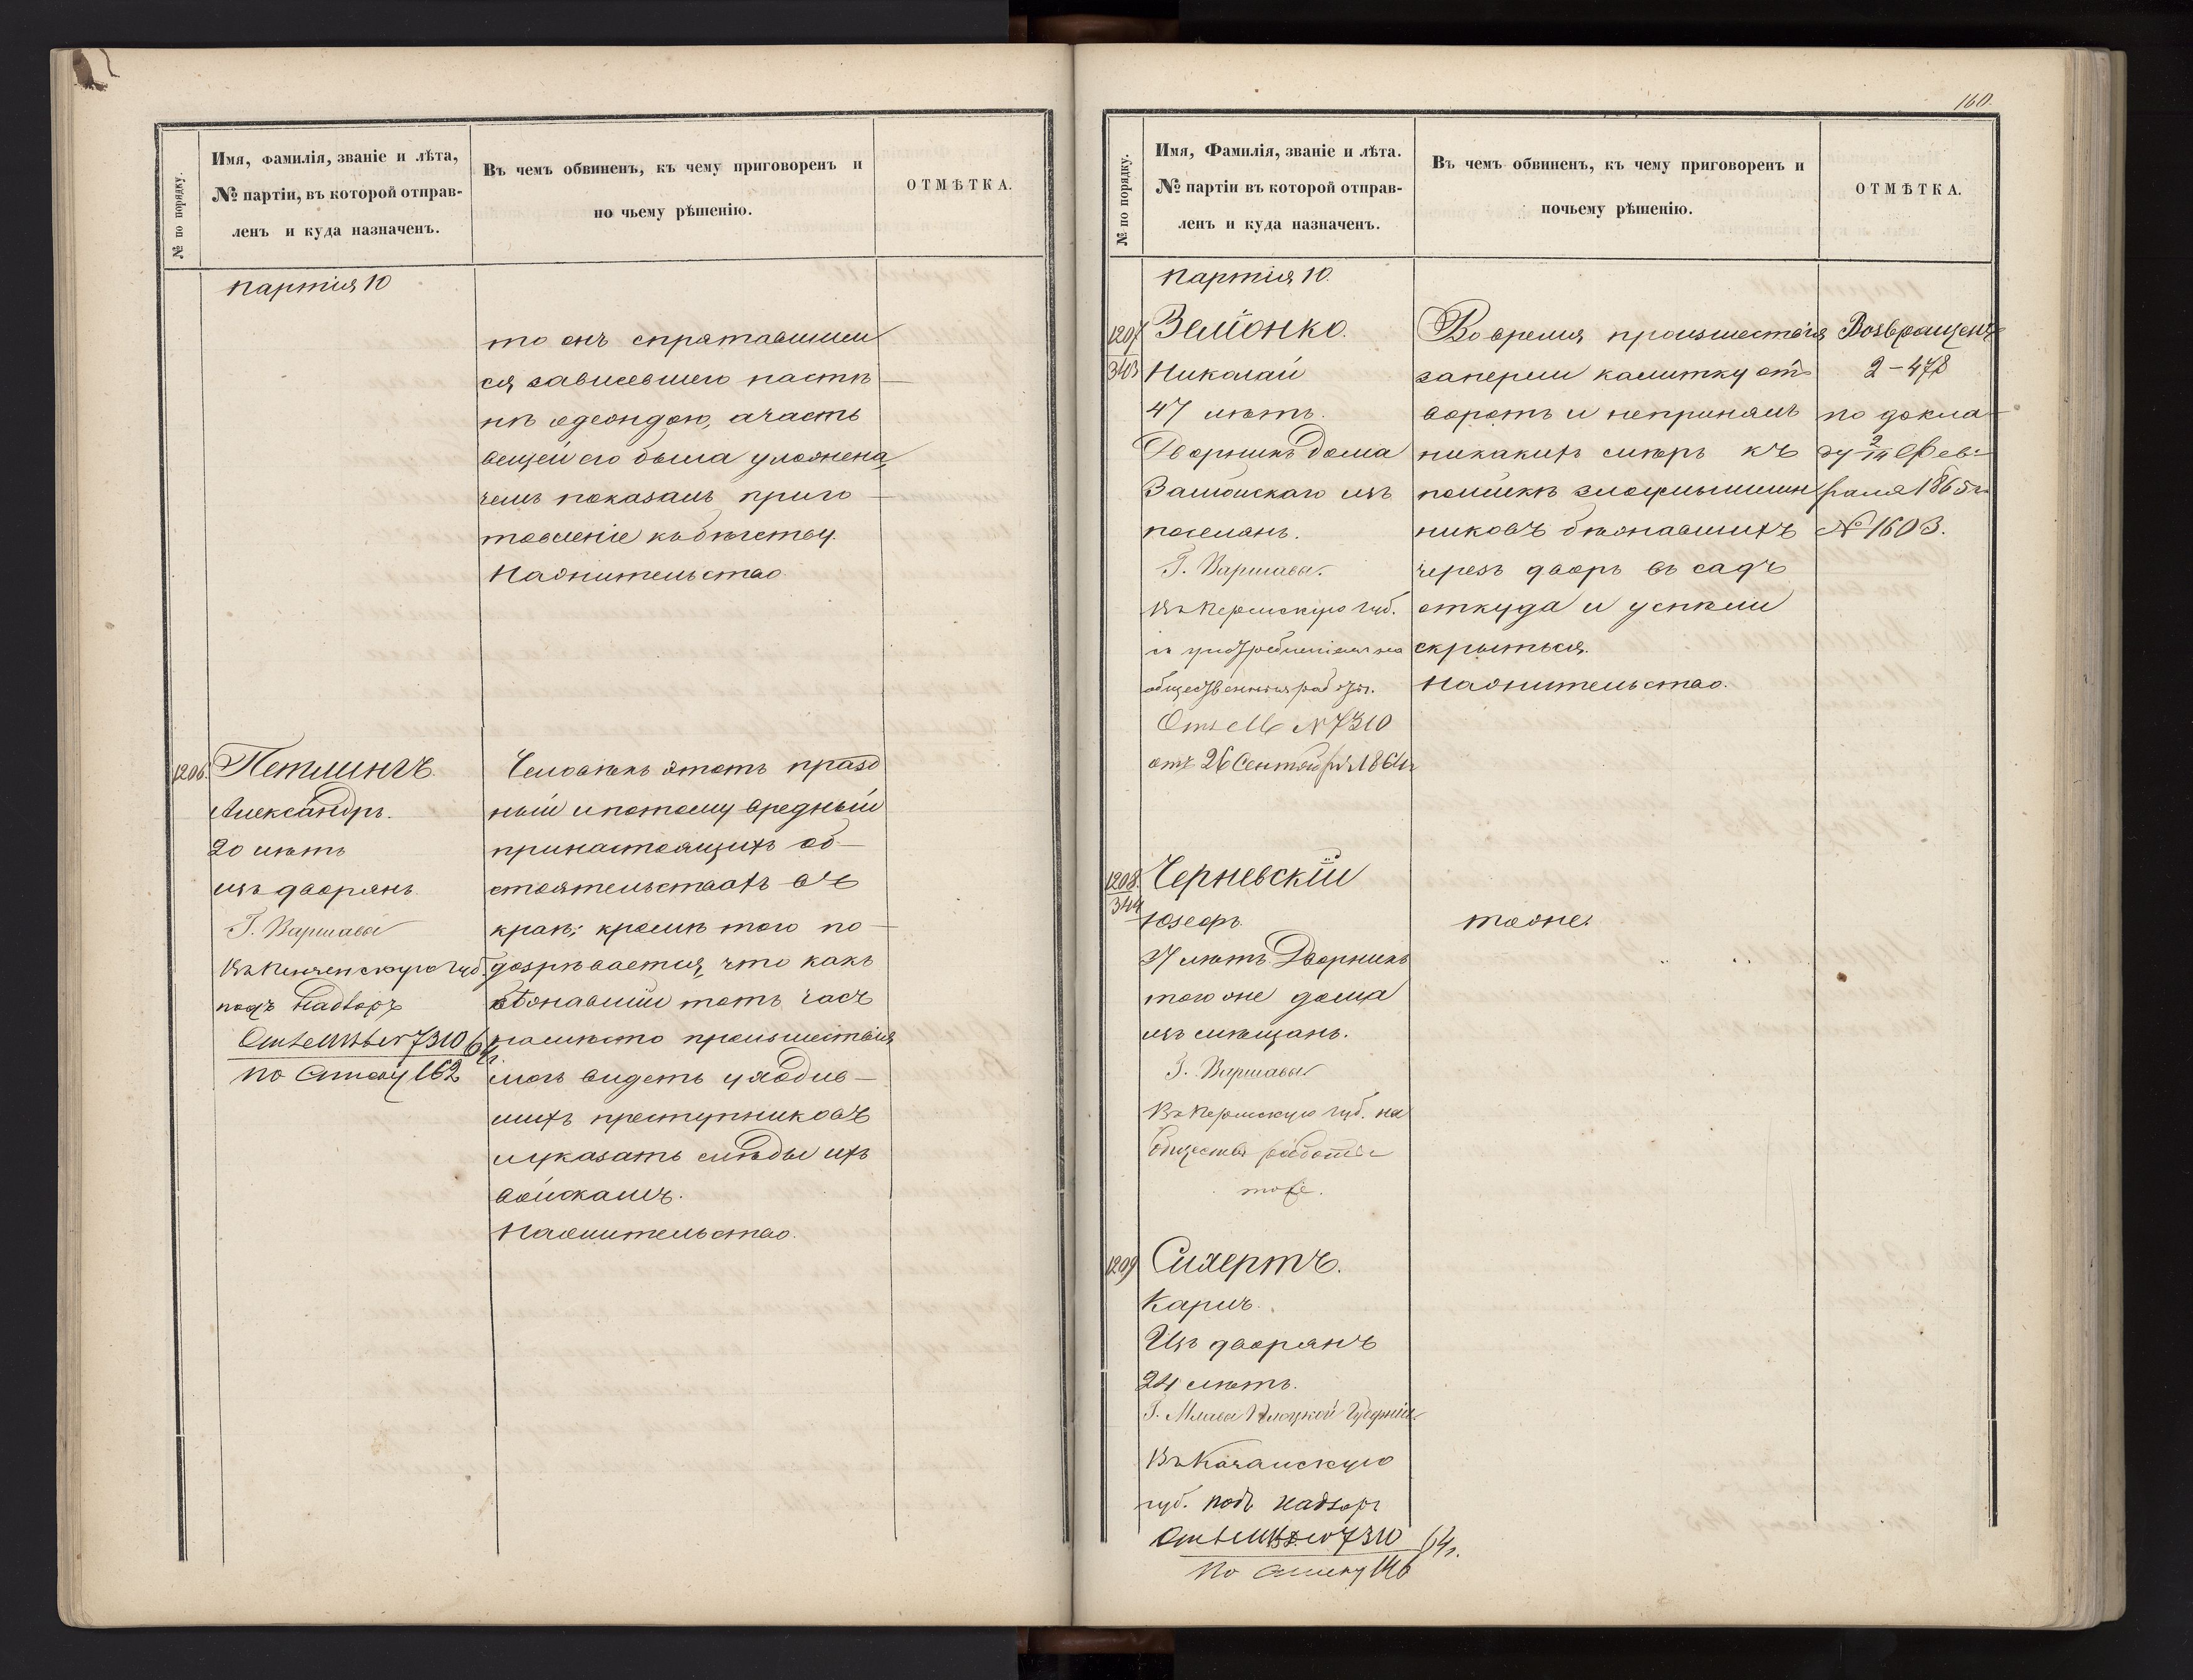 № по порядку.
Имя, Фамилія, званіе и лѣта,
№ партіи, въ которой отправ-
ленъ и куда назначенъ.
Въ чемъ обвиненъ, къ чему приговоренъ и
по чьему рѣшенію.
ОТМѢТКА.
Партія 10
то онъ спрятавшим
ся зависевшего настѣ
нѣ одеождою, а часть
вещей его была уложена,
чемъ показалъ приго
товленіе къ бѣгству.
Нажительство.
1206.
Петлингъ.
Александръ.
20 лѣтъ
изъ дворянъ.
Г. Варшавы
Въ Пензенскую губ.
подъ надзоръ
7310 64г.
По списку 162
Человѣкъ этотъ празд
ный и потому вредный
при настоящихъ об
стоятельствахъ въ
краѣ; кромѣ того по
дозрѣвается, что какъ
тотъ часъ
на мѣсто произшествія
могъ видеть уходив
шихъ преступниковъ
и указать слѣды ихъ
войскамъ.
Нажительство.
160.
№ по порядку.
Имя, Фамилія, званіе и лѣта.
№ партіи въ которой отправ-
ленъ и куда назначенъ.
Въ чемъ обвиненъ, къ чему приговоренъ и
почьему рѣшенію.
ОТМѢТКА.
Партія 10.
1207
343
Земіонко.
Николай
47 лѣтъ.
Дворникъ дома
Замойскаго изъ
поселянъ.
Г. Варшава.
Въ Пермскую губ.
съ употребленіемъ на
общественныя работы.
7310
отъ 26 Сентября 1864г.
Во время произшествія
заперли калитку отъ
воротъ и непринялъ
никакихъ мѣръ къ
поимкѣ злоумышлен
никовъ бѣжавшихъ
черезъ дворъ въ садъ
откуда и успѣли
скрыться.
Нажительство.
Возвращенъ
2-478
по докла
ду 2/14 Фев
раля 1865г.
№ 1603.
1208.
344
Черневскій
Юзефъ.
37 лѣтъ. Дворникъ
того же дома
изъ мѣщанъ.
Г. Варшавы
Въ Пермскую губ. на
работы
тоже.
тоже.
1209
Сихертъ.
Карлъ.
Изъ дворянъ
24 лѣтъ.
Г. Млава Плоцкой Губерніи
Въ Казанскую
губ. подъ надзоръ
7310 64г.
По списку 146